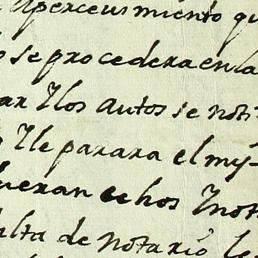 Aperceuimiento qu
o se procedera en la
ar Ylos autos se noti
Yle parara el
ueran echos Ynot
ulta de notario le